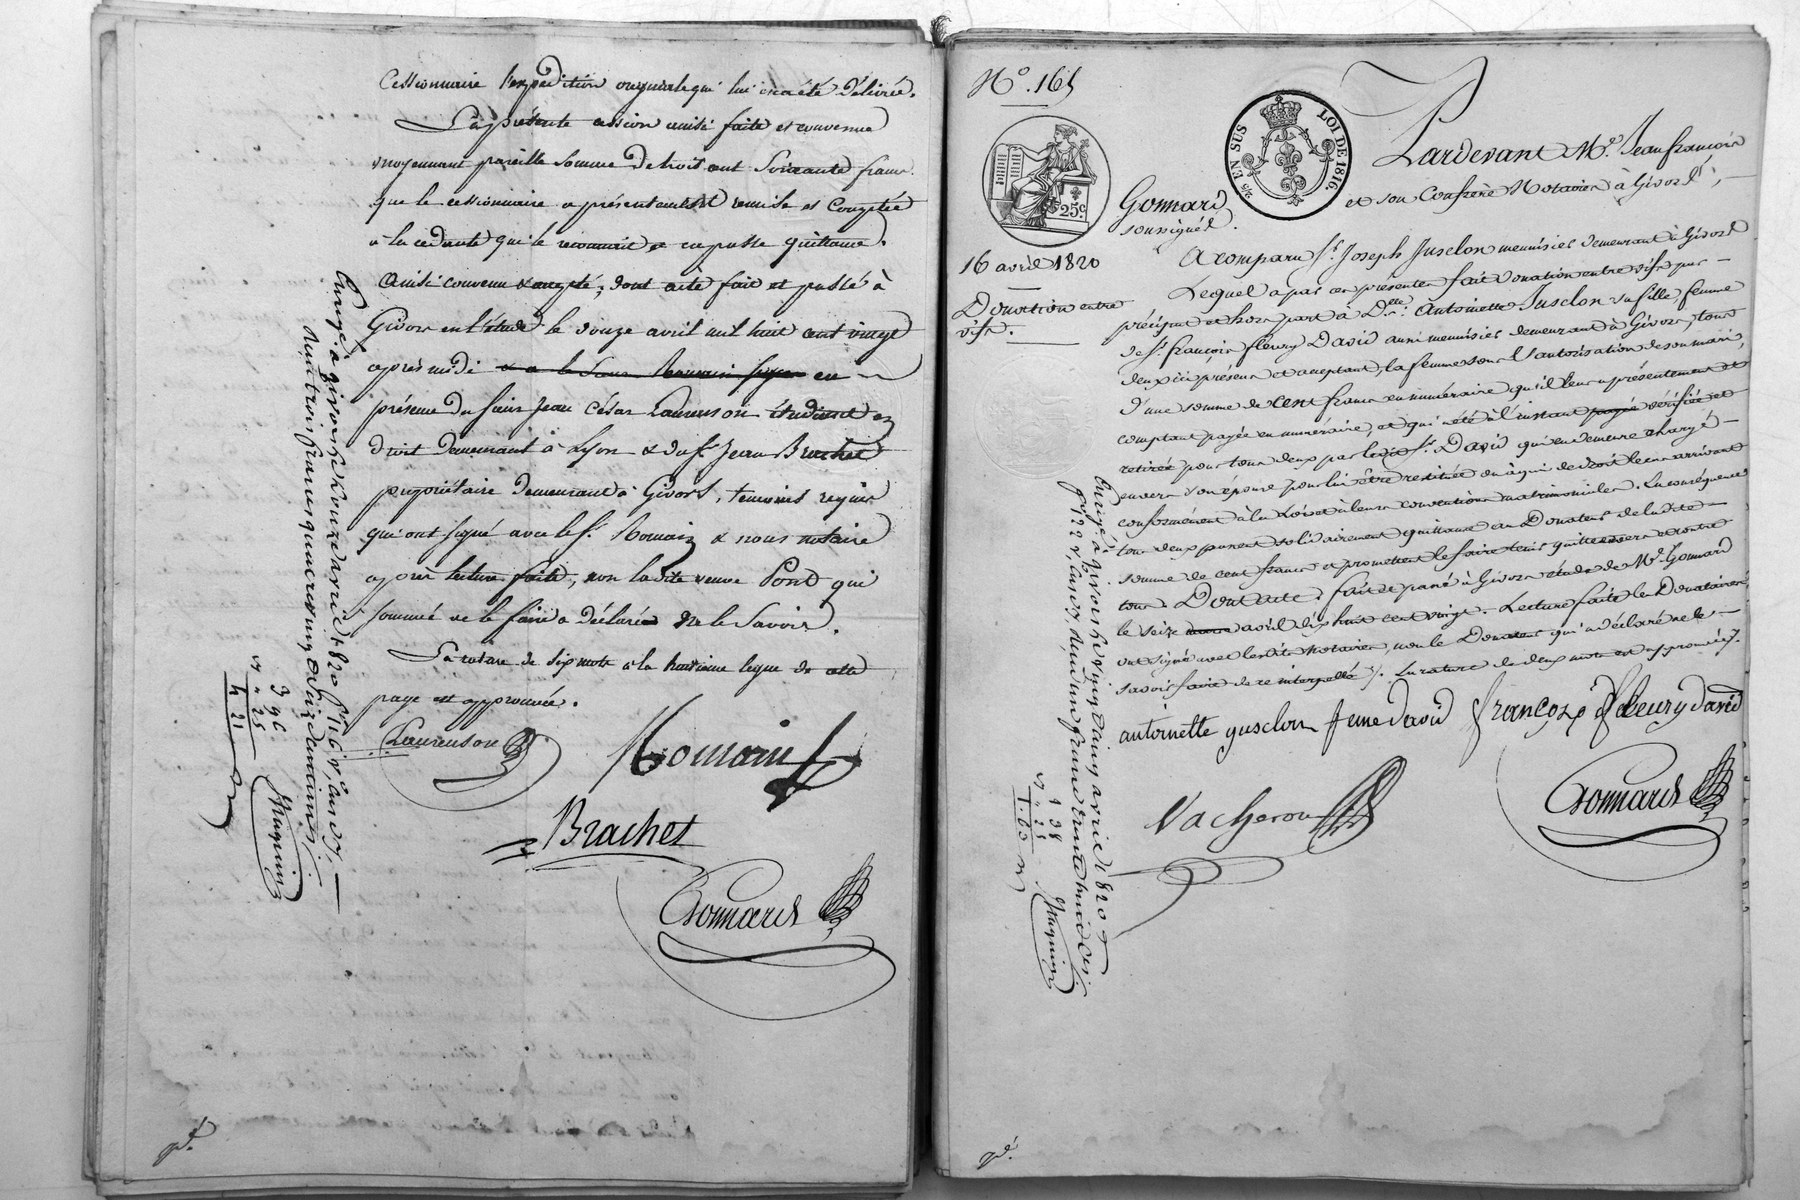 Cessionnaire l'expédition originale qui lui en a été délivrée.
La présente cession ainsi faite et convenue
moyennant pareille somme de huit cent soixante francs
que le cessionnaire a présentement remise et comptée
à la cédante qui le reconnait et en passe quittance.
Ainsi convenu & accepté, dont acte fait et passé à
Givors en l'étude le douze avril mil huit cent vingt
après midi en
présence du sieur Jean César Laurenson étudiant en
droit demeurant à Lyon & du sr. Jean Brachet
propriétaire demeurant à Givors, témoins requis
qui ont signé avec le sr. Romain & nous notaire
après lecture faite, non ladite veuve Pond qui
sommée de le faire a déclaré ne le savoir.
La rature de six mots à la huitième ligne de cette
page est approuvée.
Laurenson
Romain
Brachet
Gonnard
Enrgé. à givors le douze avril 1820 fo. 116 vo.
reçu trois francs quatre vingt seize centimes
3 96
25
4 21
Huguin
N°. 165
25 EN SUS
LOI DE 1816.
25c
Pardevant Me. Jean françois
Gonnard et son Confrère Notaires à Givors
soussignés.
16 avril 1820
Donation entre
vifs.
A comparu sr. Joseph Jusclon menuisier demeurant à Givors
Lequel a par ces présentes fait donation entre vifs par
préciput et hors part à Delle. Antoinette Jusclon sa fille, femme
de sr. françois fleury David aussi menuisier demeurant à Givors, tous
deux ici présens et acceptant, la femme sous l'autorisation de son mari,
d'une somme de cent francs en numéraire qu'il leur a présentement et
comptant payée en numéraire, et qui a été à l'instant vérifiée et
retirée pour tous deux par ledit sr. David qui en demeure chargé
envers son épouse pour lui être restituée ou à qui de droit le cas arrivant
conformément à la Loi et à leurs conventions matrimoniales. En conséquence
tous deux passent solidairement quittance au Donateur de ladite
somme de cent francs et promettent le faire tenir quitte envers et contre
tous. Dont acte, fait et passé à Givors étude de Me. Gonnard
le seize avril dix huit cent vingt. Lecture faite les Donataires
ont signé avec lesdits Notaires, non le Donateur qui a déclaré ne le
savoir faire de ce interpellé. La rature de deux mots est approuvée.
antoinette gusclon feme david françois fleury david
Vacheron
Gonnard
Enrgé. à givors le vingt avril 1820
fo. 122
1 38
25
1. 63
Huguin